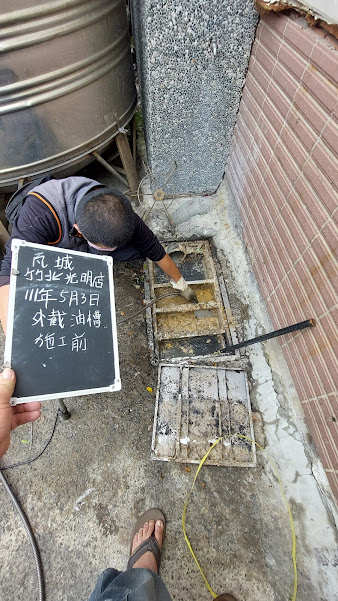 瓦城
竹北光明店
111年5月3日
外截油槽
施工前